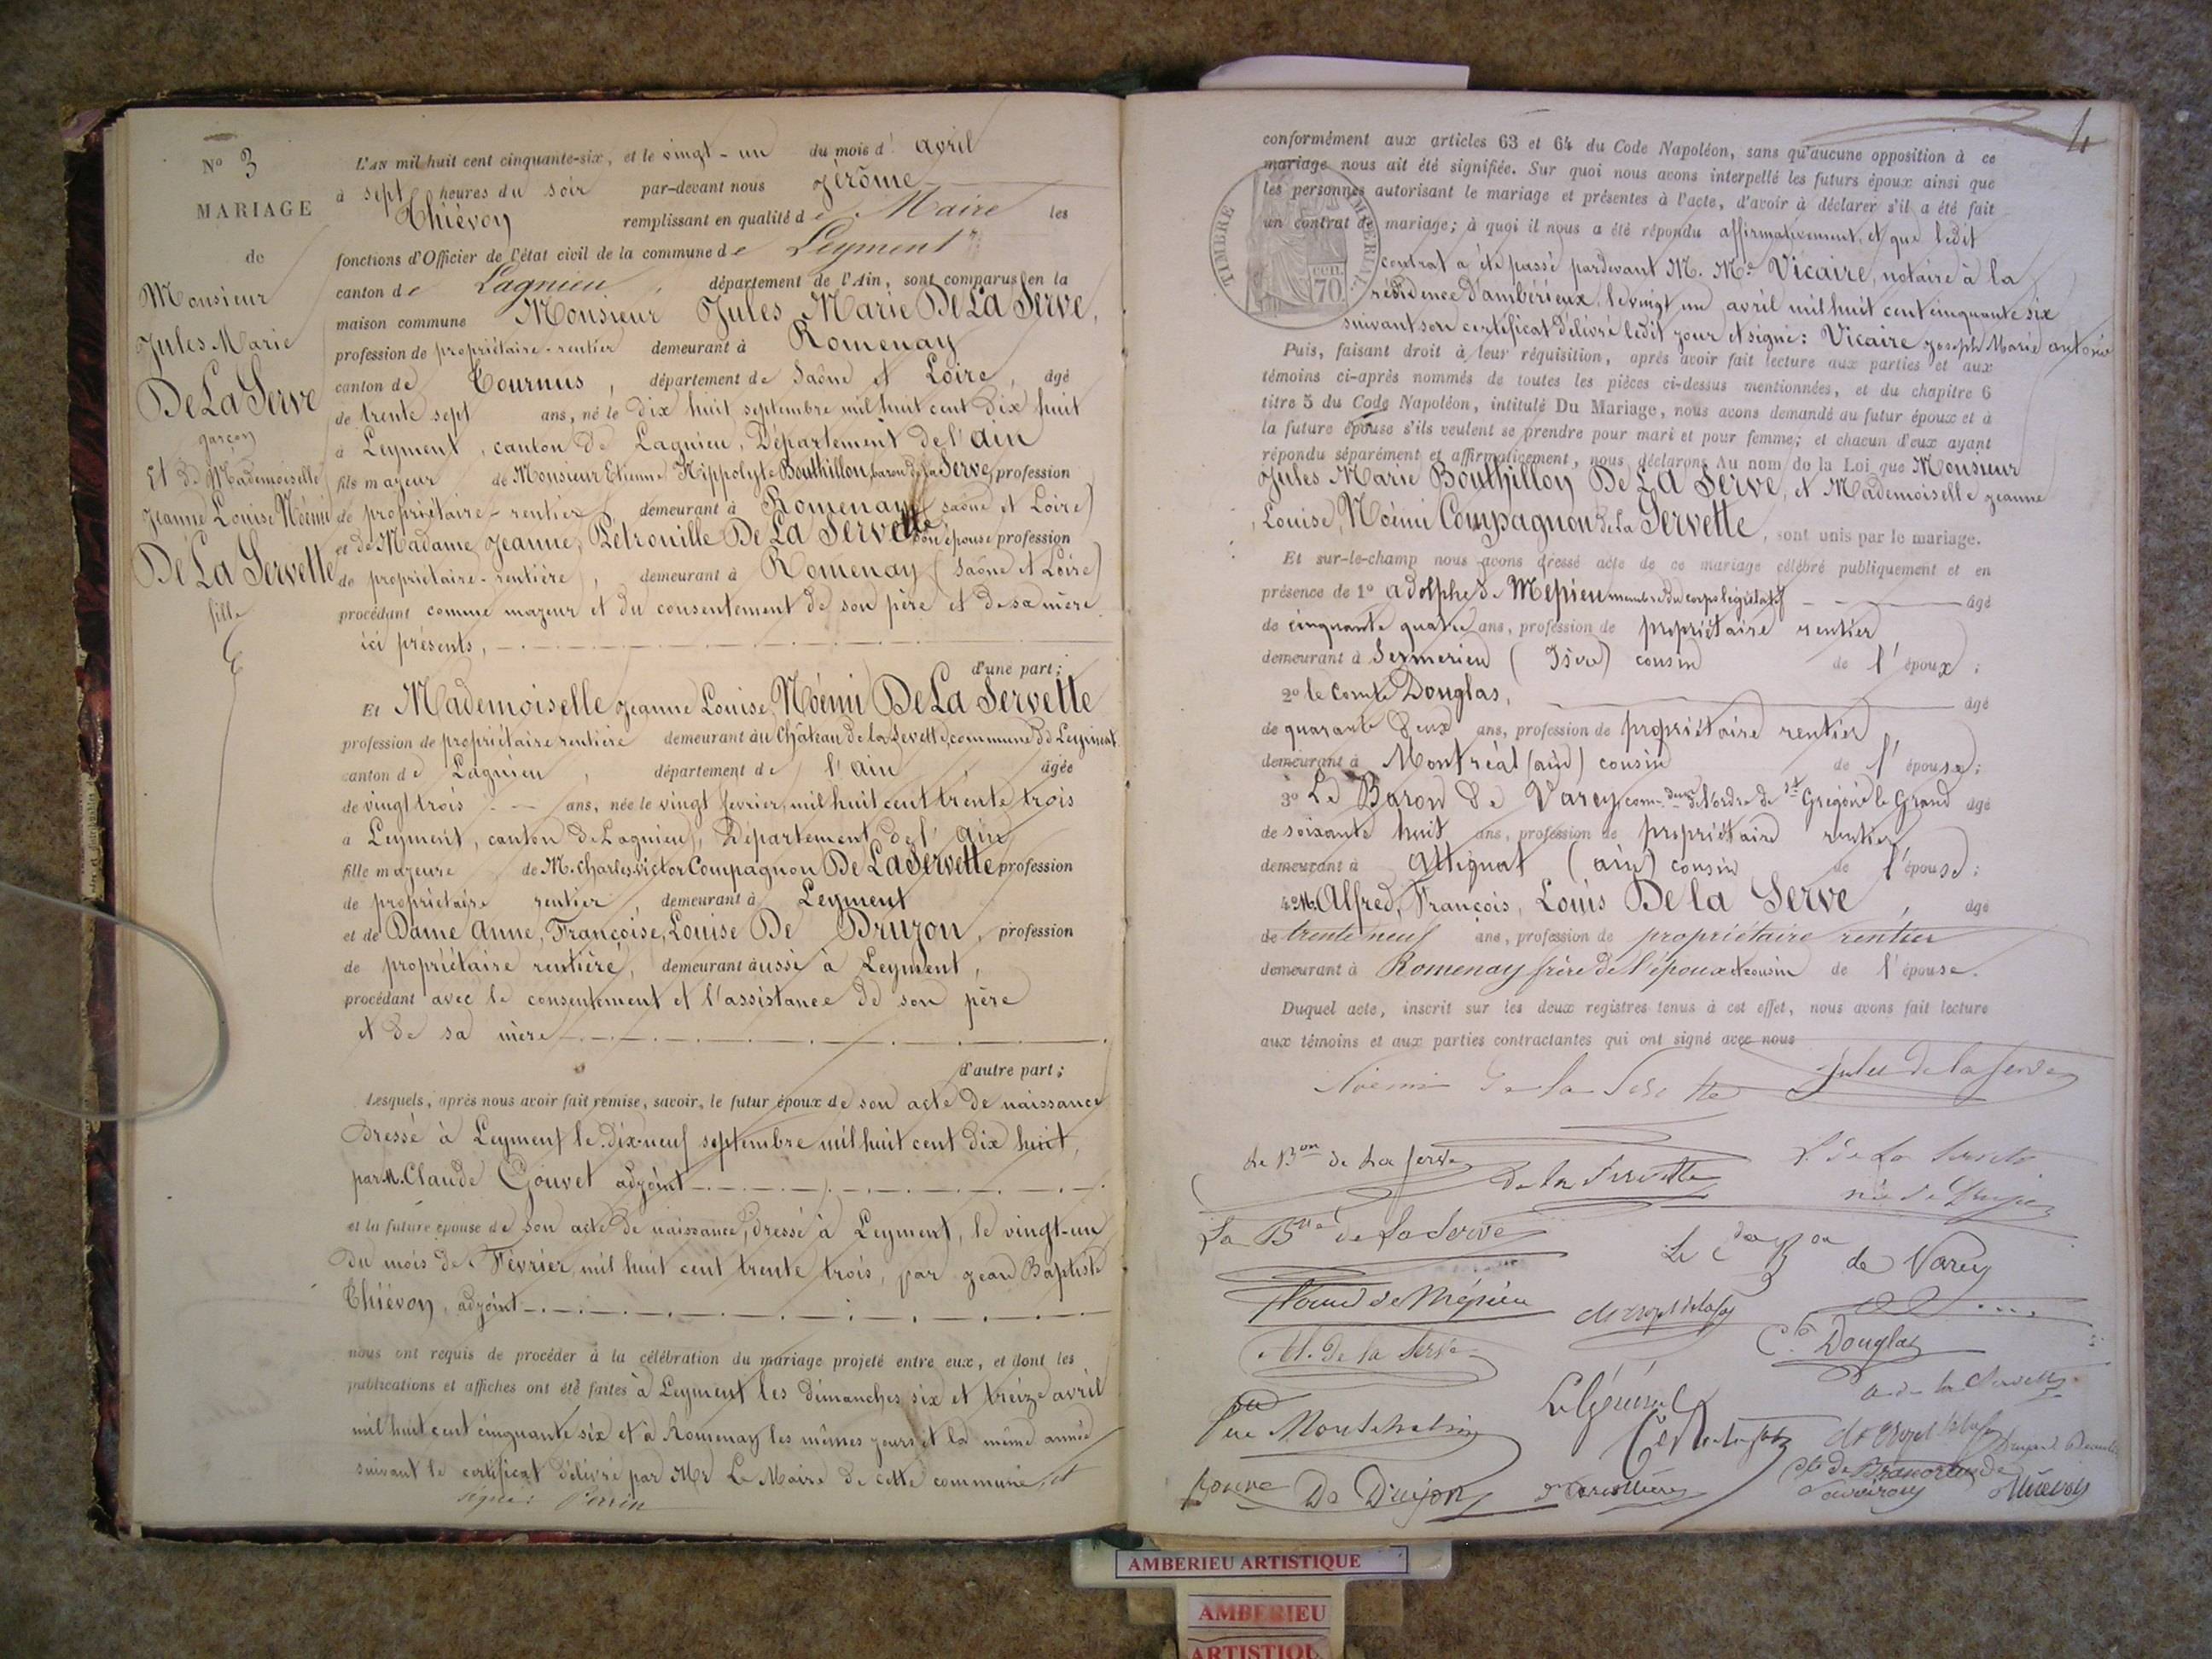 N° 3
MARIAGE
de
Monsieur
Jules Marie
De La Serve
garçon
Et de Mademoiselle
Jeanne Louise Noémi
De La Servette
fille
L'AN mil huit cent cinquante-six, et le vingt-un du mois d' avril
à sept heures du soir par-devant nous Jérôme
Thiévon remplissant en qualité de Maire les
fonctions d'Officier de l'état civil de la commune de Leyment
canton de Lagnieu, département de l'Ain, sont comparus en la
maison commune Monsieur Jules Marie De La Serve,
profession de propriétaire-rentier demeurant à Romenay
canton de Tournus, département de Saône et Loire, âgé
de trente sept ans, né le dix huit septembre mil huit cent dix huit
à Leyment, canton de Lagnieu, Département de l'ain
fils majeur de Monsieur Etienne Hippolyte Bouthillon, baron de la Serve, profession
de propriétaire-rentier demeurant à Romenay (Saône et Loire)
et de Madame Jeanne, Pétronille De La Servette son épouse profession
de propriétaire-rentière, demeurant à Romenay (Saône et Loire)
procédant comme majeur et du consentement de son père et de sa mère
ici présents,
d'une part;
Et Mademoiselle Jeanne Louise, Noémi De La Servette
profession de propriétaire rentière demeurant au Château de la Servette, commune de Leyment
canton de Lagnieu, département de l'ain, âgée
de vingt trois ans, née le vingt fevrier, mil huit cent trente trois
a Leyment, canton de Lagnieu, Département de l'ain
fille majeure de M. Charles-Victor Compagnon De La Servette profession
de propriétaire rentier, demeurant à Leyment
et de Dame Anne, Françoise, Louise De Druzon, profession
de propriétaire rentière, demeurant aussi à Leyment,
procédant avec le consentement et l'assistance de son père
et de sa mère
d'autre part;
Lesquels, après nous avoir fait remise, savoir, le futur époux de son acte de naissance
Dressé à Leyment le dix-neuf septembre mil huit cent dix huit,
par M. Claude Gouvet adjoint
et la future épouse de son acte de naissance, dressé à Leyment, le vingt-un
du mois de Février, mil huit cent trente trois, par Jean Baptiste
Thiévon, adjoint
nous ont requis de procéder à la célébration du mariage projeté entre eux, et dont les
publications et affiches ont été faites à Leyment les dimanches six et treize avril
mil huit cent cinquante six et à Romenay les mêmes jours et la même année
suivant le certificat délivré par Mr Le Maire de cette commune, et
signé: Perrin
4
conformément aux articles 63 et 64 du Code Napoléon, sans qu'aucune opposition à ce
mariage nous ait été signifiée. Sur quoi nous avons interpellé les futurs époux ainsi que
les personnes autorisant le mariage et présentes à l'acte, d'avoir à déclarer s'il a été fait
un contrat de mariage; à quoi il nous a été répondu affirmativement, et que ledit
contrat a été passé pardevant M. Me Vicaire, notaire à la
résidence d'ambérieux, le vingt un avril mil huit cent cinquante six
suivant son certificat délivré ledit jour et signé: Vicaire Joseph Marie antoine
TIMBRE IMPÉRIAL
70 cen.
Puis, faisant droit à leur réquisition, après avoir fait lecture aux parties et aux
témoins ci-après nommés de toutes les pièces ci-dessus mentionnées, et du chapitre 6
titre 5 du Code Napoléon, intitulé Du Mariage, nous avons demandé au futur époux et à
la future épouse s'ils veulent se prendre pour mari et pour femme; et chacun d'eux ayant
répondu séparément et affirmativement, nous déclarons Au nom de la Loi que Monsieur
Jules Marie Bouthillon De La Serve, et Mademoiselle Jeanne
Louise, Noémi Compagnon de la Servette, sont unis par le mariage.
Et sur-le-champ nous avons dressé acte de ce mariage célébré publiquement et en
présence de 1° adolphe de Mépieu membre du corps législatif âgé
de cinquante quatre ans, profession de propriétaire rentier
demeurant à Sermerieu (Isère) cousin de l'époux;
2° le Comte Douglas, âgé
de quarante deux ans, profession de propriétaire rentier
demeurant à Montréal (ain) cousin de l'épouse;
3° Le Baron de Varey, com.deur de l'ordre de St Grégoire le Grand âgé
de soixante huit ans, profession de propriétaire rentier
demeurant à attignat (ain) cousin de l'épouse;
4° M. Alfred, François, Louis De la Serve, âgé
de trente neuf ans, profession de propriétaire rentier
demeurant à Romenay frère de l'époux et cousin de l'épouse.
Duquel acte, inscrit sur les deux registres tenus à cet effet, nous avons fait lecture
aux témoins et aux parties contractantes qui ont signé avec nous
Noémi de la Servette Jules de la Serve
Le Bon de La Serve de la Servette L. de La Servette
née de Druzon
La Bne de La Serve Le Bon de Varey
de Mépieu
A. de la Serve Cte Douglas
Le Général a de la Servette
De Druzon Thiévon
AMBERIEU ARTISTIQUE
AMBERIEU
ARTISTIQU